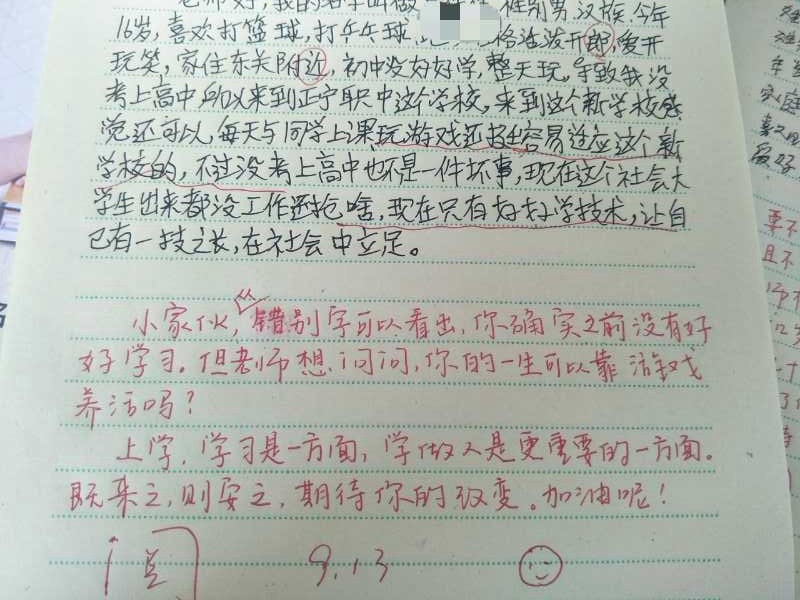 老师好，我的名字叫做 性别男，汉族，今年
16岁，喜欢打篮球，打乒乓球 格活泼开郎，爱开
玩笑，家住东关附近，初中没好好学，整天玩。导致我没
考上高中所以来到正宁职中这个学校，来到这个新学校感
觉还可以，每天与同学上课玩游戏还挺容易适应这个新
学校的，不过没考上高中也不是一件坏事，现在这个社会大
学生出来都没工作还抢啥，现在只有好好学技术，让自
己有一技之长，在社会中立足。
小家伙，从错别字可以看出，你确实之前没有好
好学习。但老师想问问，你的一生可以靠游戏
养活吗？
上学，学习是一方面，学做人是更重要的一方面。
既来之，则安之，期待你的改变。加油呢！
阅 9.13